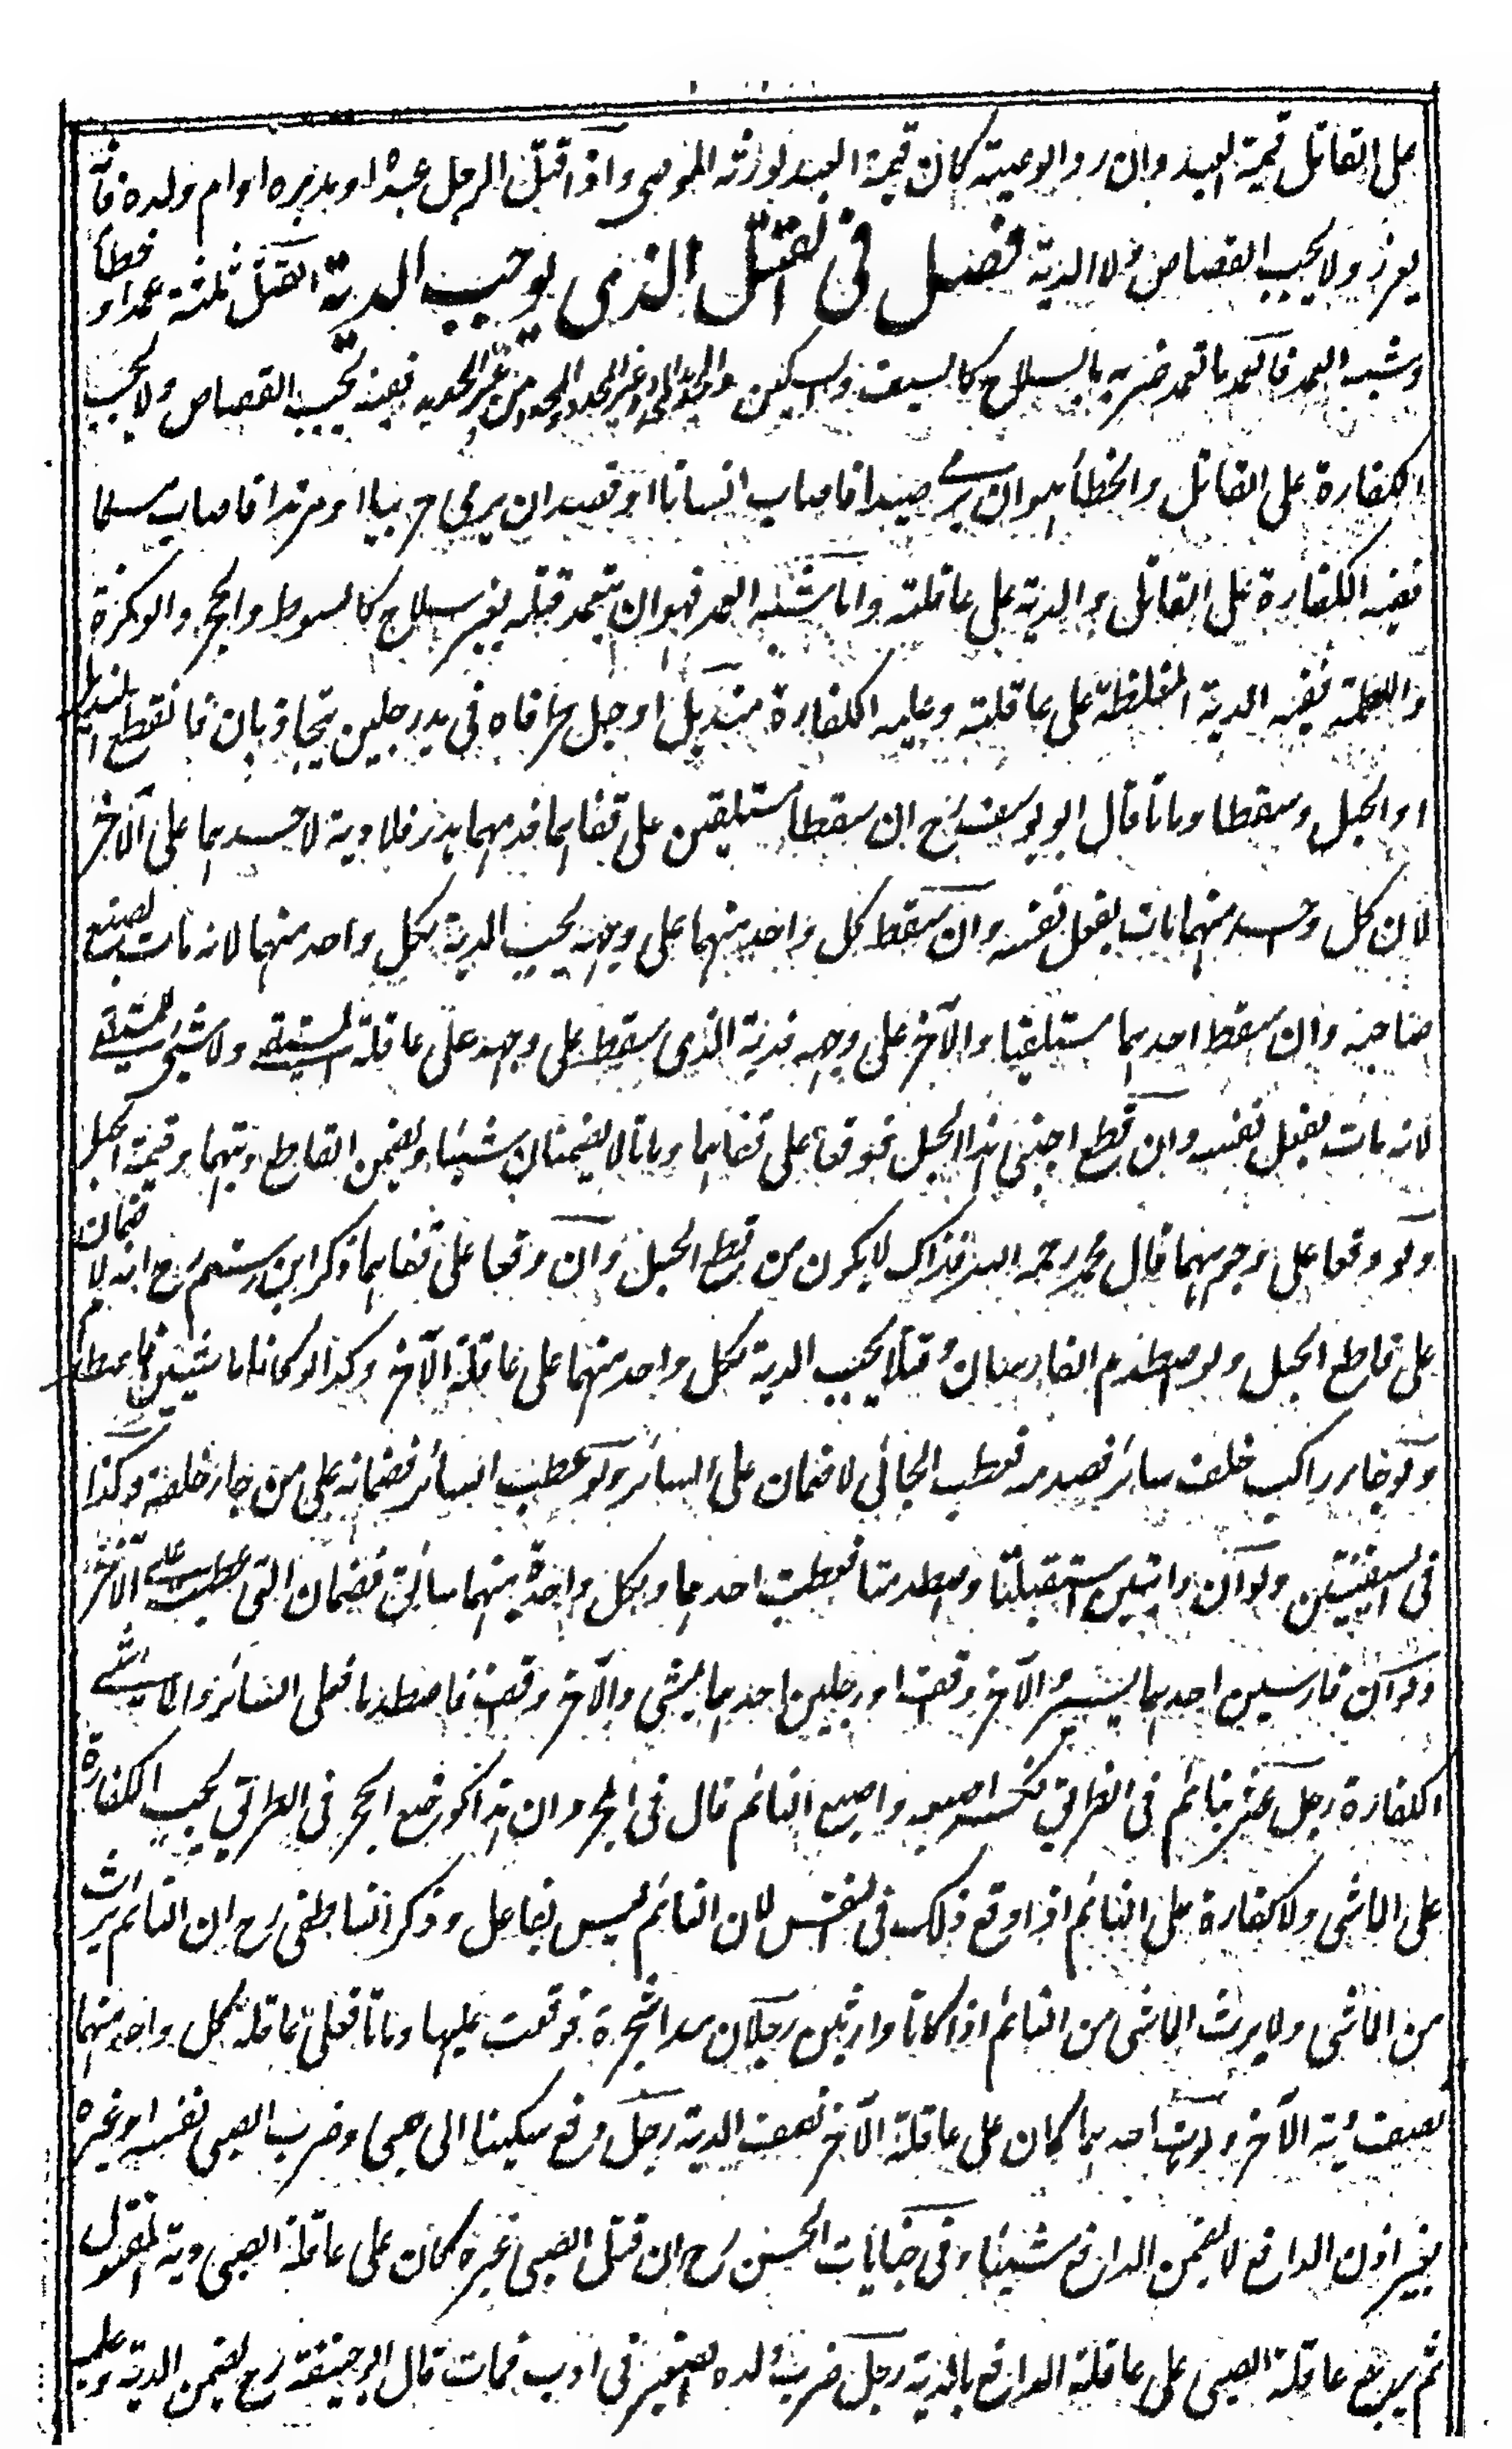 على القاتل قيمة العبد وان ردوا الوصية كان قيمة العبد لورثة الموصى واذا قتل الرجل عبده او مدبره او ام ولده فانه
يعزر ولا يجب القصاص ولا الدية فصل فى القتل الذى يوجب الدية القتل ثلثة عمدا وخطأ
وشبه العمد فالعمد ما تعمد ضربه بالسلاح كالسيف والسكين من غير الحديد ففيه يجب القصاص ولا يجب
الكفارة على القاتل والخطأ هو ان يرمى صيدا فاصاب انسانا او قصد ان يرمى حربيا او مرتدا فاصاب مسلما
ففيه الكفارة على القاتل والدية على عاقلته واما شبه العمد فهو ان يتعمد قتله بغير سلاح كالسوط والحجر والوكزة
واللطمة ففيه الدية المغلظة على عاقلته وعليه الكفارة منديل او حبل طرفاه فى يد رجلين يتجاذبان فانقطع المنديل
او الحبل وسقطا وماتا قال ابو يوسف رح ان سقطا مستلقين على قفاهما فدمهما هدر فلا دية لاحدهما على الآخر
لان كل واحد منهما مات بفعل نفسه وان سقط كل واحد منهما على وجهه يجب الدية لكل واحد منهما لانه مات بصنع
صاحبه وان سقط احدهما مستلقيا والآخر على وجهه فدية الذى سقط على وجهه على عاقلة المستلقى ولا شئ للمستلقى
لانه مات بفعل نفسه وان قطع اجنبى هذا الحبل فوقعا على قفاهما وماتا لا يضمنان شيئا ويضمن القاطع ديتهما وقيمة الحبل
ولو وقعا على وجوههما قال محمد رحمه الله فذاك لا يكون من قطع الحبل وان وقعا على قفاهما ذكر ابن رستم رح انه لا ضمان
على قاطع الحبل ولو اصطدم الفارسان وقتلا يجب الدية لكل واحد منهما على عاقلة الآخر وكذا لو كانا ماشيين فاصطدما
ولو جاء راكب خلف سائر فصدمه فعطب الجائى لا ضمان على السائر ولو عطب السائر فضمانه على من جاء خلفه وكذا
فى السفينتين ولو ان دابتين استقبلتا واصطدمتا فعطبت احدهما ولكل واحدة منهما سائق فضمان التى عطبت على الآخر
ولو ان فارسين احدهما يسير والآخر وقف او رجلين احدهما يمشى والآخر وقف فاصطدما فعلى السائر والماشى
الكفارة رجل عثر بنائم فى الطريق فكسر اصبعه واصبع النائم قال فى المجرد ان هذا كوضع الحجر فى الطريق يجب الكفارة
على الماشى ولا كفارة على النائم اذا وقع ذلك فى النفس لان النائم ليس بفاعل وذكر الناطفى رح ان النائم يرث
من الماشى ولا يرث الماشى من النائم اذا كانا وارثين رجلان مدا شجرة فوقعت عليهما وماتا فعلى عاقلة كل واحد منهما
نصف دية الآخر ولو مات احدهما كان على عاقلة الآخر نصف الدية رجل دفع سكينا الى صبى وضرب الصبى نفسه او غيره
بغير اذن الدافع لا يضمن الدافع شيئا وفى جنايات الحسن رح ان قتل الصبى غيره كان على عاقلة الصبى دية المقتول
ثم يرجع عاقلة الصبى على عاقلة الدافع بالدية رجل ضرب ولده الصغير فى ادب فمات قال ابو حنيفة رح يضمن الدية وعليه